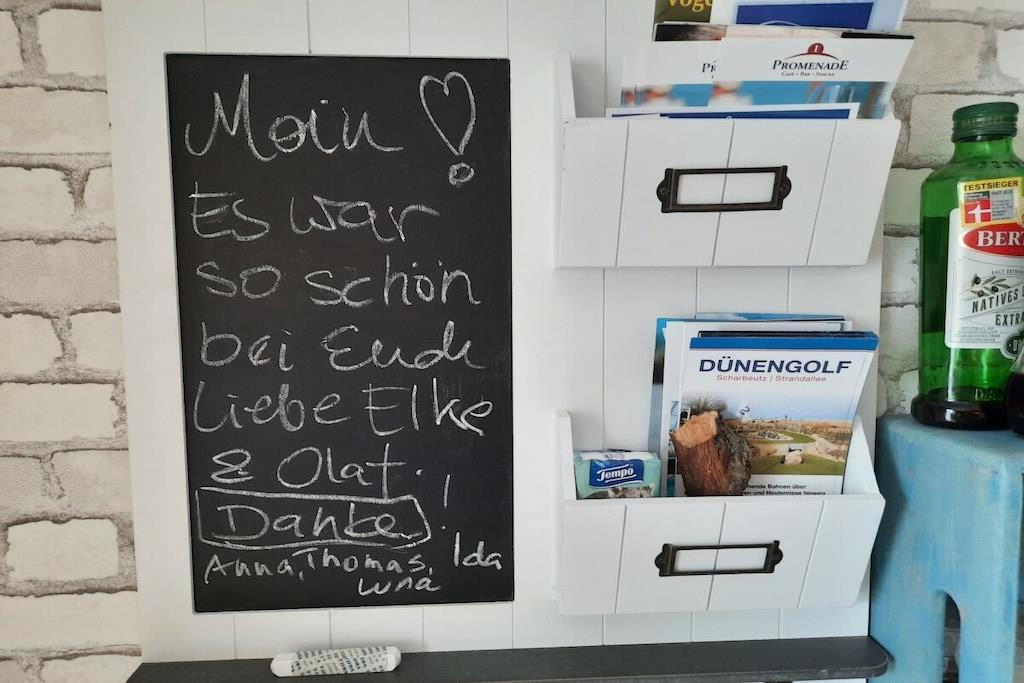 Moin !
Es war
so schön
bei Euch
Liebe Elke
& Olaf.
Danke !
Anna, Thomas, Ida
Luna
Voge
PROMENADE
Café • Bar • Snacks
DÜNENGOLF
Scharbeutz | Strandallee
Tempo
TESTSIEGER
BER
NATIVES
EXTRA